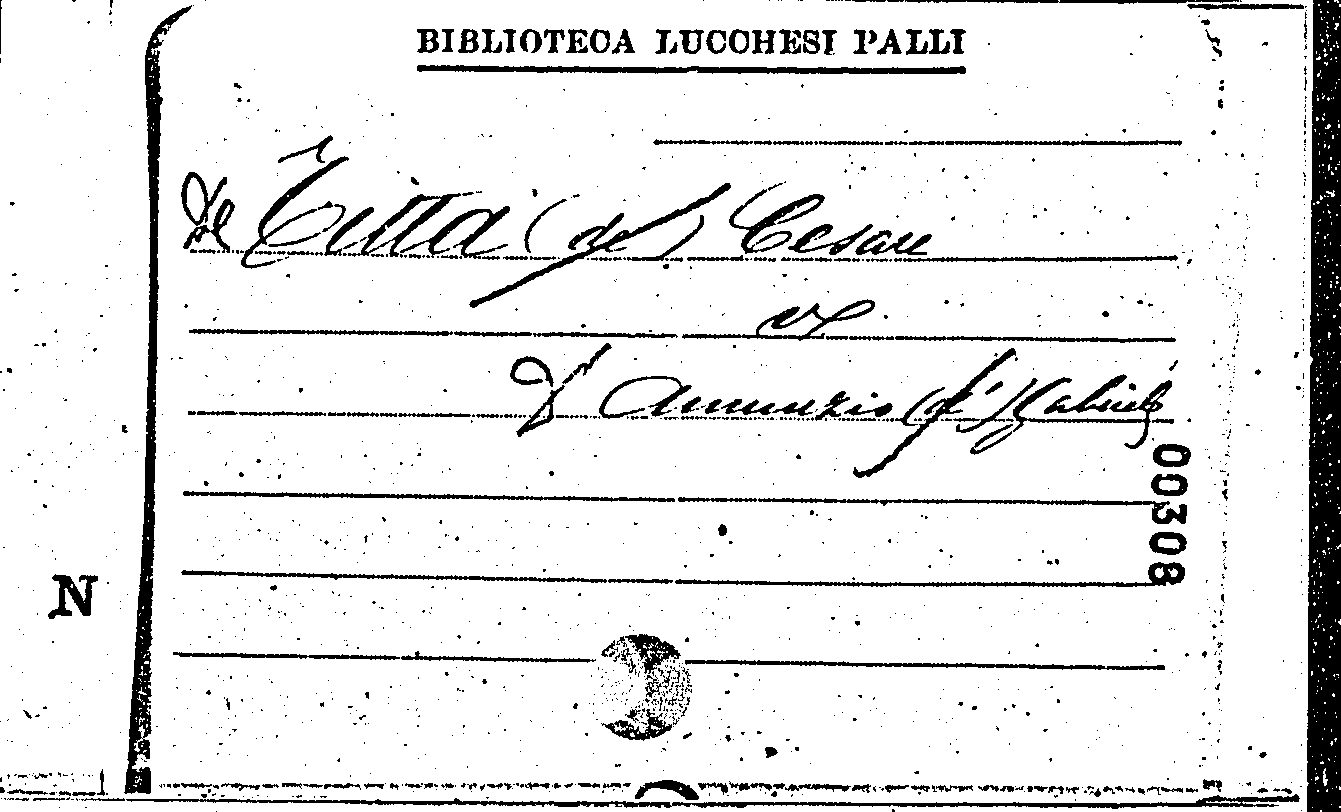 BIBLIOTECA LUCCHESI PALLI
De Titta (de) Cesare
D'Annunzio (d') Gabriele
00308
N